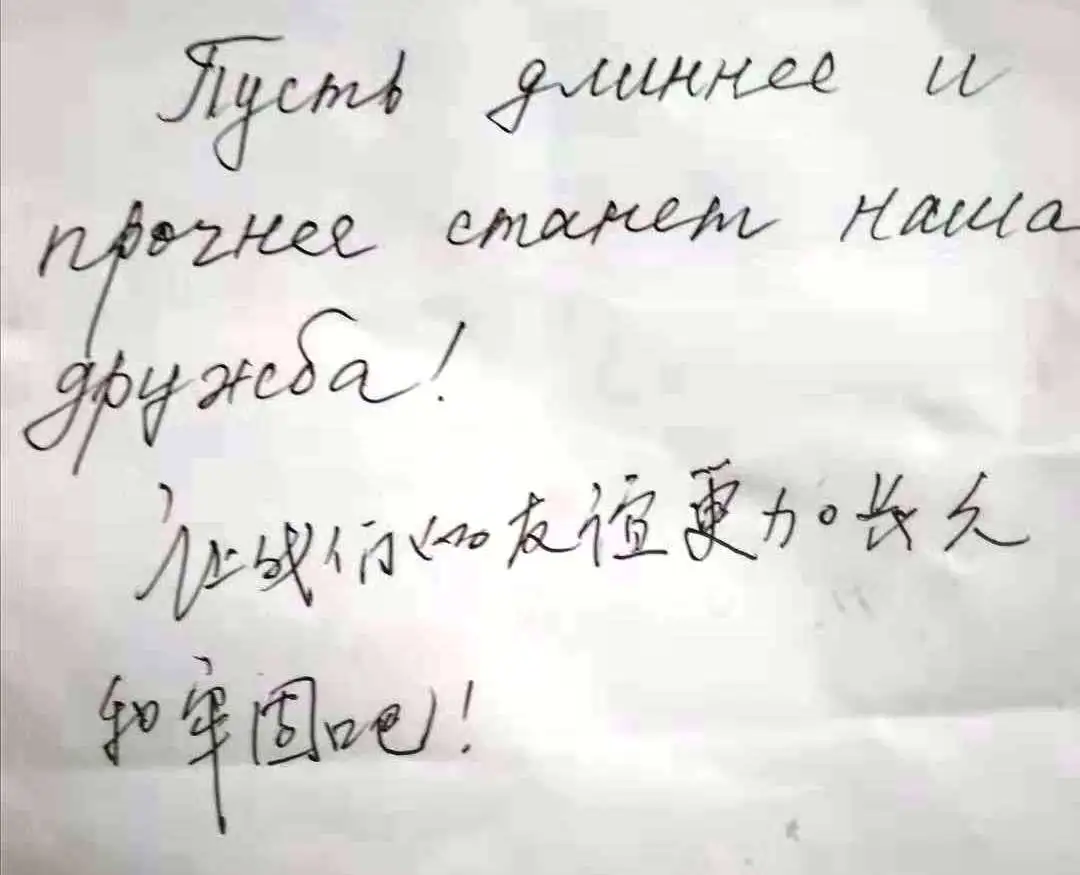 Пусть длиннее и
прочнее станет наша
дружба!
让我们的友谊更加长久
和牢固吧!